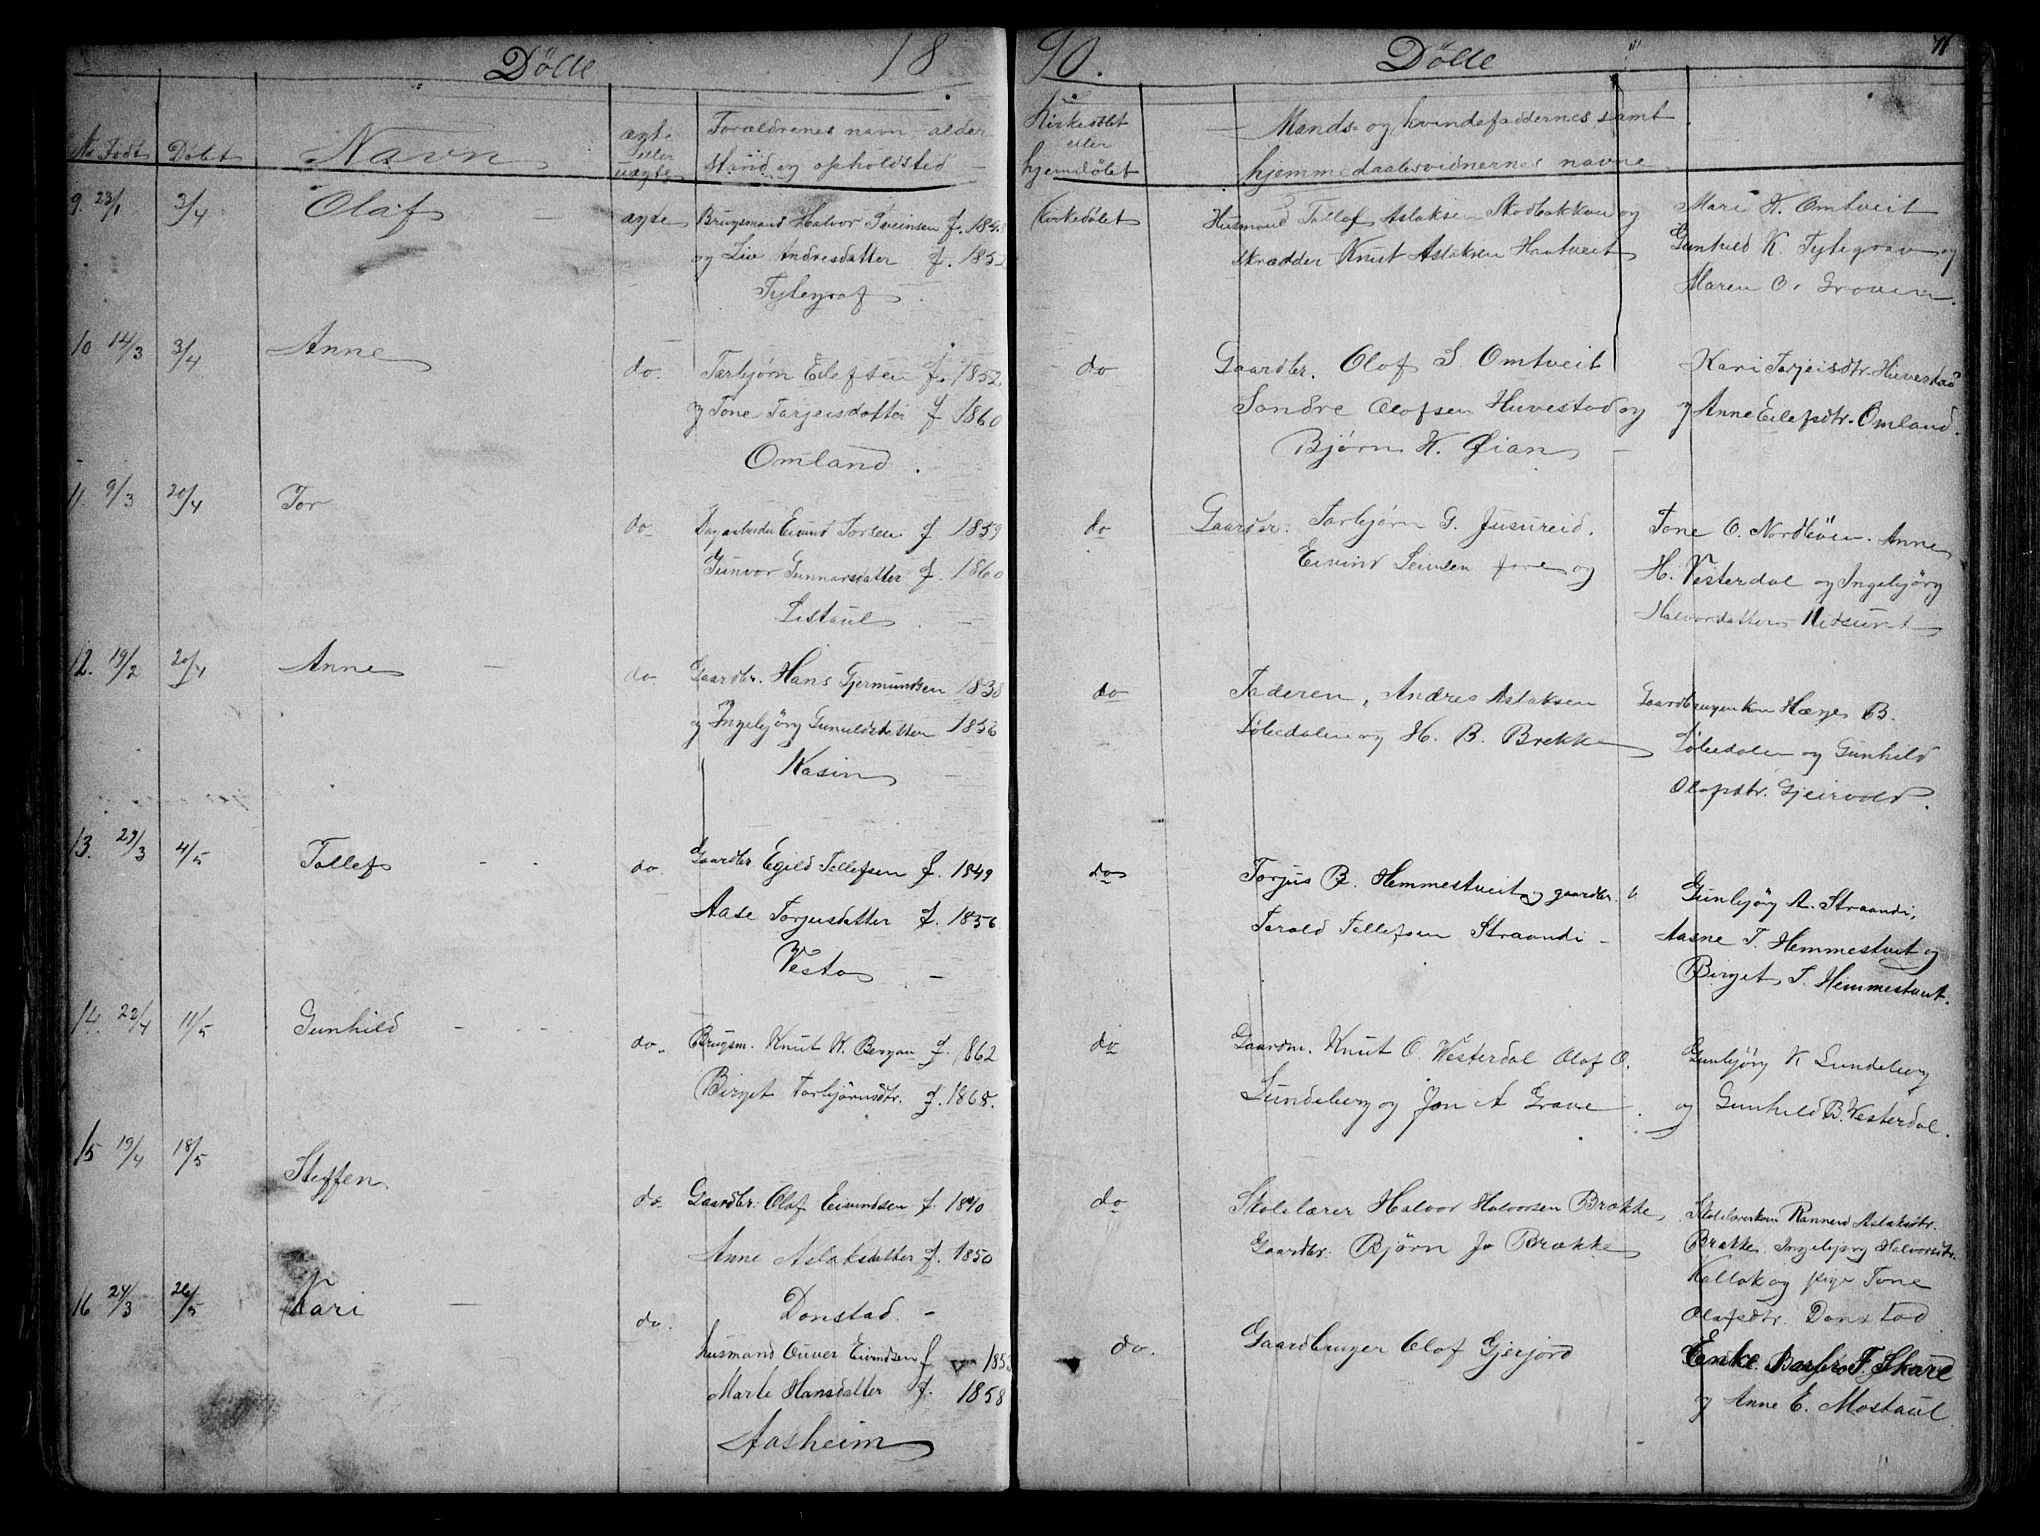 Dölte 18 90. Dölte
No Født Döbt Navn ægte eller uægte Forældrenes navn, alder stand og opholdsted
Kirkedöbt eller hjemdöbt Mands- og kvindefaddernes samt
hjemmedaabsvidnernes navne
9. 23/1 3/4 Olaf ægte Brugsmand Halvor Sveinsen f. 1848
og Liv Andresdatter f. 1852
Tytegraf
Kirkedöbt Husmand Tollef Aslaksen Skodbakken og
skrædder Knut Aslaksen Haatveit
Mari K. Omtveit
Gunhild K. Tytegrav og
Maren O. Groven.
10 14/3 3/4 Anne do. Torbjørn Eilefsen f. 1852
og Tone Tarjeisdatter f 1860
Omland.
do Gaardbr. Olof S. Omtveit
Sondre Olofsen Huvestad og
Bjørn K. Øian
Kari Tarjeisdtr. Huvestad
og Anne Eilefsdtr. Omland.
11. 9/3 20/4 Tor do Dagarbeider Eivind Torsen f 1859
Gunvor Gunnarsdatter f. 1860
Listaul
do Gaardbr. Torbjørn G. Jusureid.
Eivind Leivsen Jore og
Tone O. Nordböen. Anne
H. Vesterdal og Ingebjörg
Halvorsdatter Midsund
12. 19/2 20/4 Anne do. Gaardbr. Hans Gjermundsen 1838
og Ingebjörg Gunuldsdatter 1856
Kasin
do Faderen, Andres Aslaksen
Löbedalen og H. B. Brekke
Gaardbrugerkon Hæge B.
Löbedalen og Gunhild
Olafsdtr. Gjeirvold.
13. 29/3 4/5 Tollef do. Gaardbr. Egild Tollefsen f. 1849
Aase Torjusdatter f. 1856
Vesta
do Torjus B. Hemmestveit og gaardbr.
Torald Tollefsen Straandi
Gunbjörg A. Straandi,
Aasne T. Hemmestveit og
Birget T. Hemmestveit.
14. 22/4 11/5 Gunhild do. Brugsm. Knut K. Bergan f. 1862
Birget Torbjörnsdtr. f. 1865.
do Gaardm. Knut O. Vesterdal Olaf O.
Lundeberg og Jon A Grave
Gunbjörg K Lundeberg
og Gunhild B. Vesterdal.
15 19/4 18/5 Steffen do. Gaardbr. Olaf Eivindsen f. 1840
Anne Aslaksdatter f. 1850
Donstad.
do Skolelærer Halvor Halvorsen Brække
Gaardbr. Bjørn Jo Brække
Skolelærerkon Ranneid Aslaksdtr.
Brække. Ingebjörg Halvorsdtr.
Kallak og pige Tone
Olafsdtr. Donstad
16 24/3 26/5 Kari do. husmand Ouver Eivindsen f 1853
Marte Hansdatter f. 1858
Aasheim
do. Gaardbruger Olof Gjerjord
Enke Barbro T. Skare
og Anne E. Mostaul